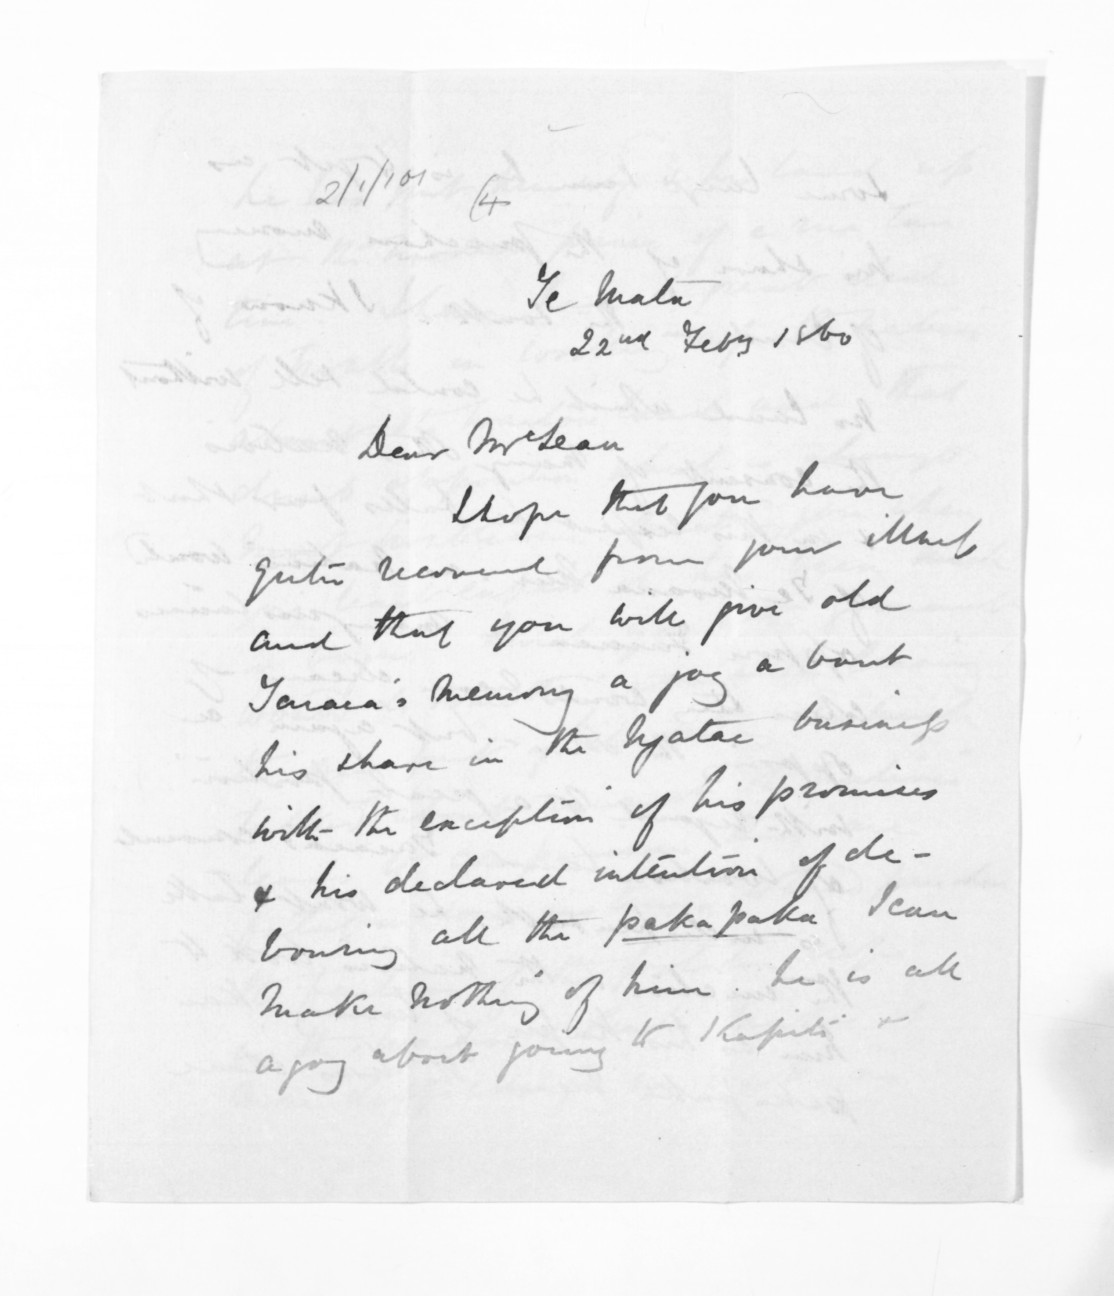 2/1/101 (4
Te Mata
22nd Feby 1860
Dear McLean
I hope that you have
quite recovered from your illness
and that you will give old
Tareaia's memory a jog a bout
his share in the business
with the exception of his promises
& his declared intention of de-
vouring all the pakapaka I can
make nothing of him. he is all
agog about going to Kapiti &